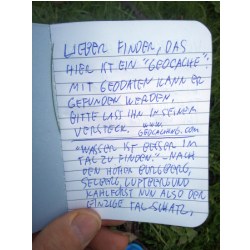 LIEBER FINDER, DAS
HIER IST EIN "GEOCACHE".
MIT GEODATEN KANN ER
GEFUNDEN WERDEN.
BITTE LASS IHN IN SEINEM
VERSTECK. WWW.
GEOCACHING.COM
"WASSER IST BESSER IM
TAL ZU FINDEN." NACH
DEN HÖHEN BURGBERG,
SELBERG, LUFTBERG UND
KAHLFORST NUN ALSO DER
EINZIGE TALSCHATZ.